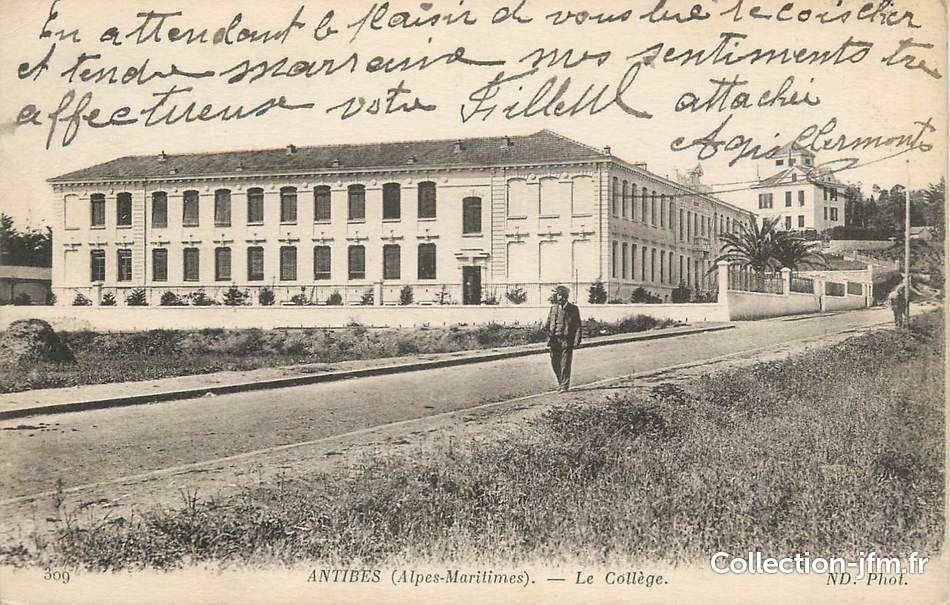 En attendant le plaisir de vous lire recoiscler
et tendre marraine mes sentiments tres
affectueuse votre Filleul attachée
Agis Clermont
309 ANTIBES (Alpes-Maritimes). — Le Collège. ND. Phot.
Collection-jfm.fr